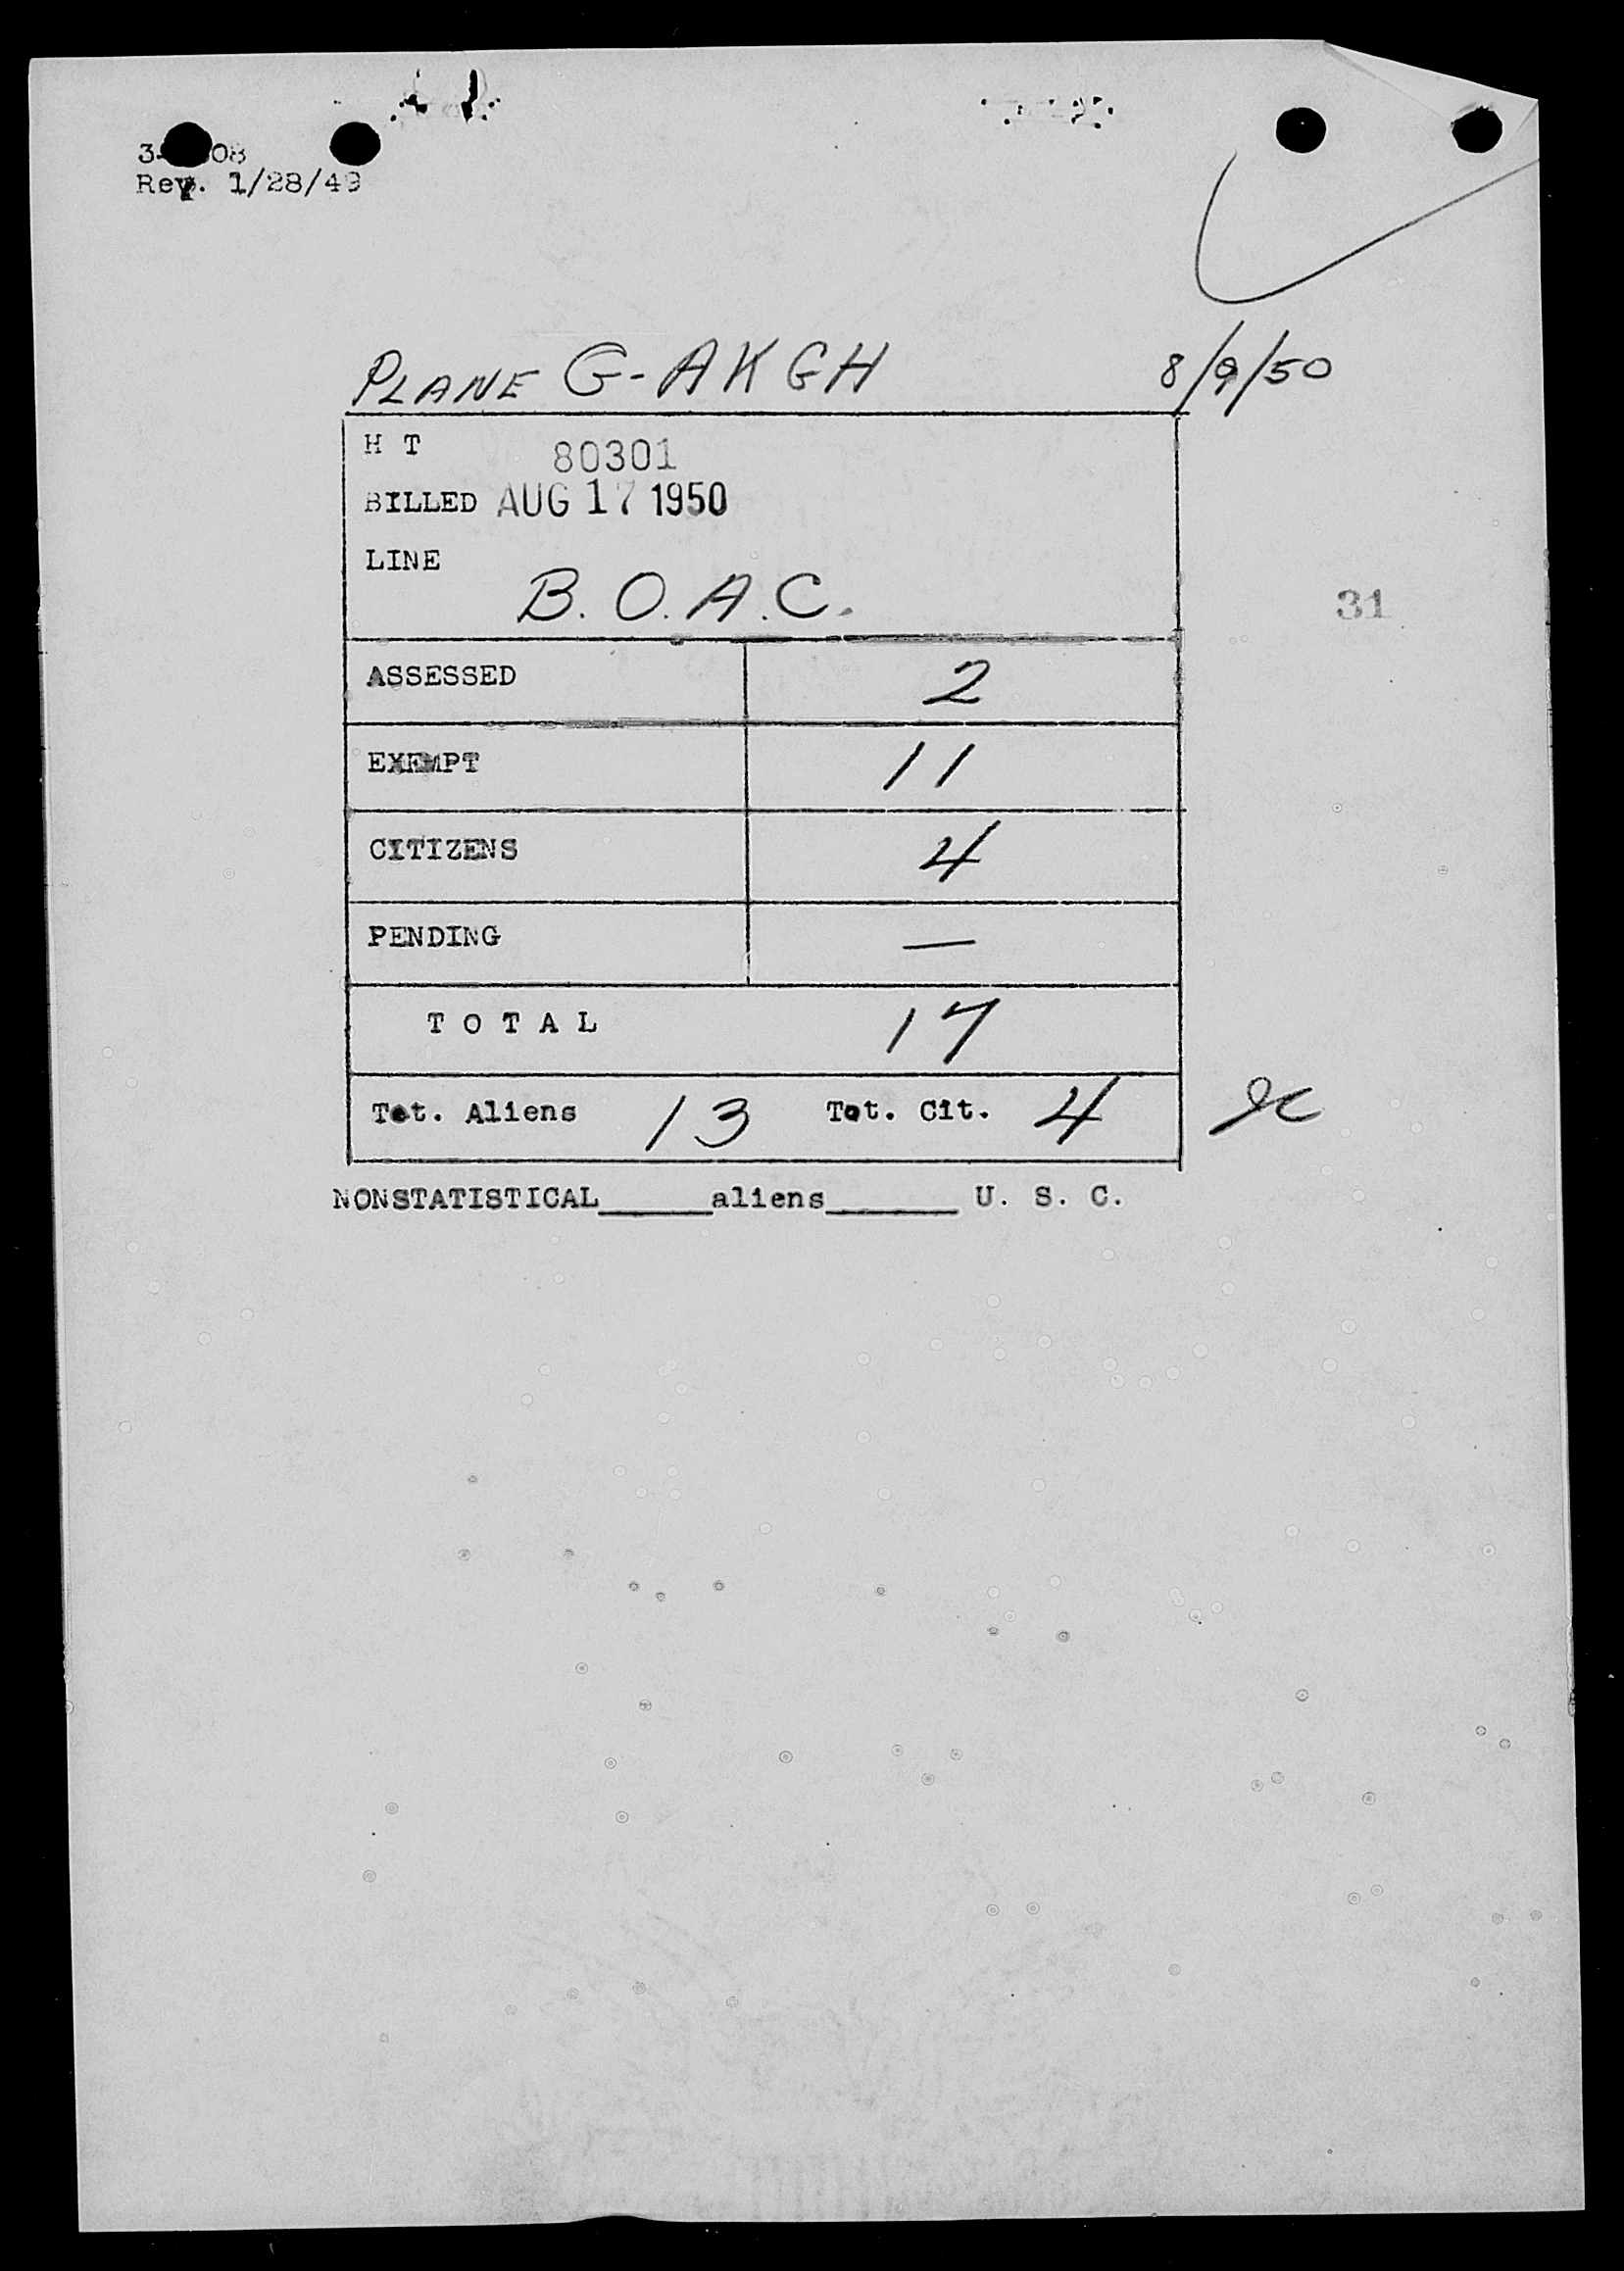 Rev. 1/28/49
PLANE G-AKGH 8/9/50
H T 80301
BILLED AUG 17 1950
LINE
B.O.A.C.
31
ASSESSED 2
EXEMPT 11
CITIZENS 4
PENDING —
TOTAL 17
Tot. Aliens 13 Tot. Cit. 4
NONSTATISTICAL______aliens_______ U. S. C.